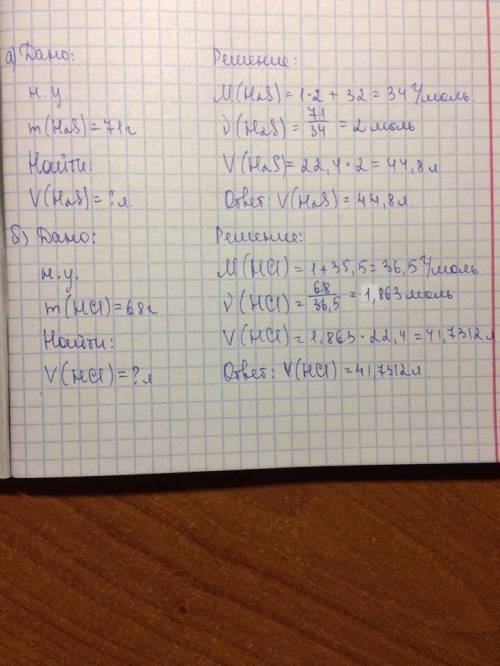 а) Дано:
н.у
m(H₂S)=71г
Найти:
V(H₂S)=?л
Решение:
M(H₂S)=1·2+32=34 г/моль
ν(H₂S)=71/34=2 моль
V(H₂S)=22,4·2=44,8л
Ответ: V(H₂S)=44,8л
б) Дано:
н.у.
m(HCl)=68г
Найти:
V(HCl)=?л
Решение:
M(HCl)=1+35,5=36,5 г/моль
ν(HCl)=68/36,5=1,863 моль
V(HCl)=1,863·22,4=41,7312л
Ответ: V(HCl)=41,7312л